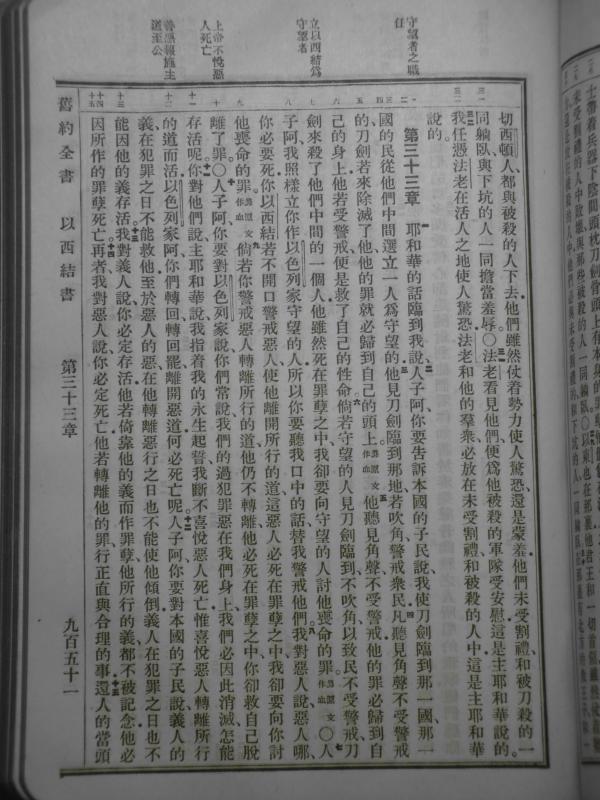 士帶着兵器下陰間頭枕刀劍骨頭上有本身的罪孽
守望者之職
任
立以西結為
守望者
上帝不悅惡
人死亡
善惡報施主
道至公
切西頓人都與被殺的人下去他們雖然仗着勢力使人驚恐還是蒙羞他們未受割禮和被刀殺的一
同躺臥與下坑的人一同擔當羞辱○法老看見他們便為他被殺的軍隊受安慰這是主耶和華說的
我任憑法老在活人之地使人驚恐法老和他的羣衆必放在未受割禮和被殺的人中這是主耶和華
說的
第三十三章 耶和華的話臨到我說人子阿你要告訴本國的子民說我使刀劍臨到那一國那一
國的民從他們中間選立一人為守望的他見刀劍臨到那地若吹角警戒衆民凡聽見角聲不受警戒
的刀劍若來除滅了他他的罪就必歸到自己的頭上罪原文作血他聽見角聲不受警戒他的罪必歸到自
己的身上他若受警戒便是救了自己的性命倘若守望的人見刀劍臨到不吹角以致民不受警戒刀
劍來殺了他們中間的一個人他雖然死在罪孽之中我卻要向守望的人討他喪命的罪罪原文作血○人
子阿我照樣立你作以色列家守望的人所以你要聽我口中的話替我警戒他們我對惡人說惡人哪
你必要死你以西結若不開口警戒惡人使他離開所行的道這惡人必死在罪孽之中我卻要向你討
他喪命的罪罪原文作血倘若你警戒惡人轉離所行的道他仍不轉離他必死在罪孽之中你卻救自己脫
離了罪○人子阿你要對以色列家說你們常說我們的過犯罪惡在我們身上我們必因此消滅怎能
存活呢你對他們說主耶和華說我指着我的永生起誓我斷不喜悅惡人死亡惟喜悅惡人轉離所行
的道而活以色列家阿你們轉回轉回罷離開惡道何必死亡呢人子阿你要對本國的子民說義人的
義在犯罪之日不能救他至於惡人的惡在他轉離惡行之日也不能使他傾倒義人在犯罪之日也不
能因他的義存活我對義人說你必定存活他若倚靠他的義而作罪孽他所行的義都不被記念他必
因所作的罪孽死亡再者我對惡人說你必定死亡他若轉離他的罪行正直與合理的事還人的當頭
舊約全書 以西結書 第三十三章 九百五十一